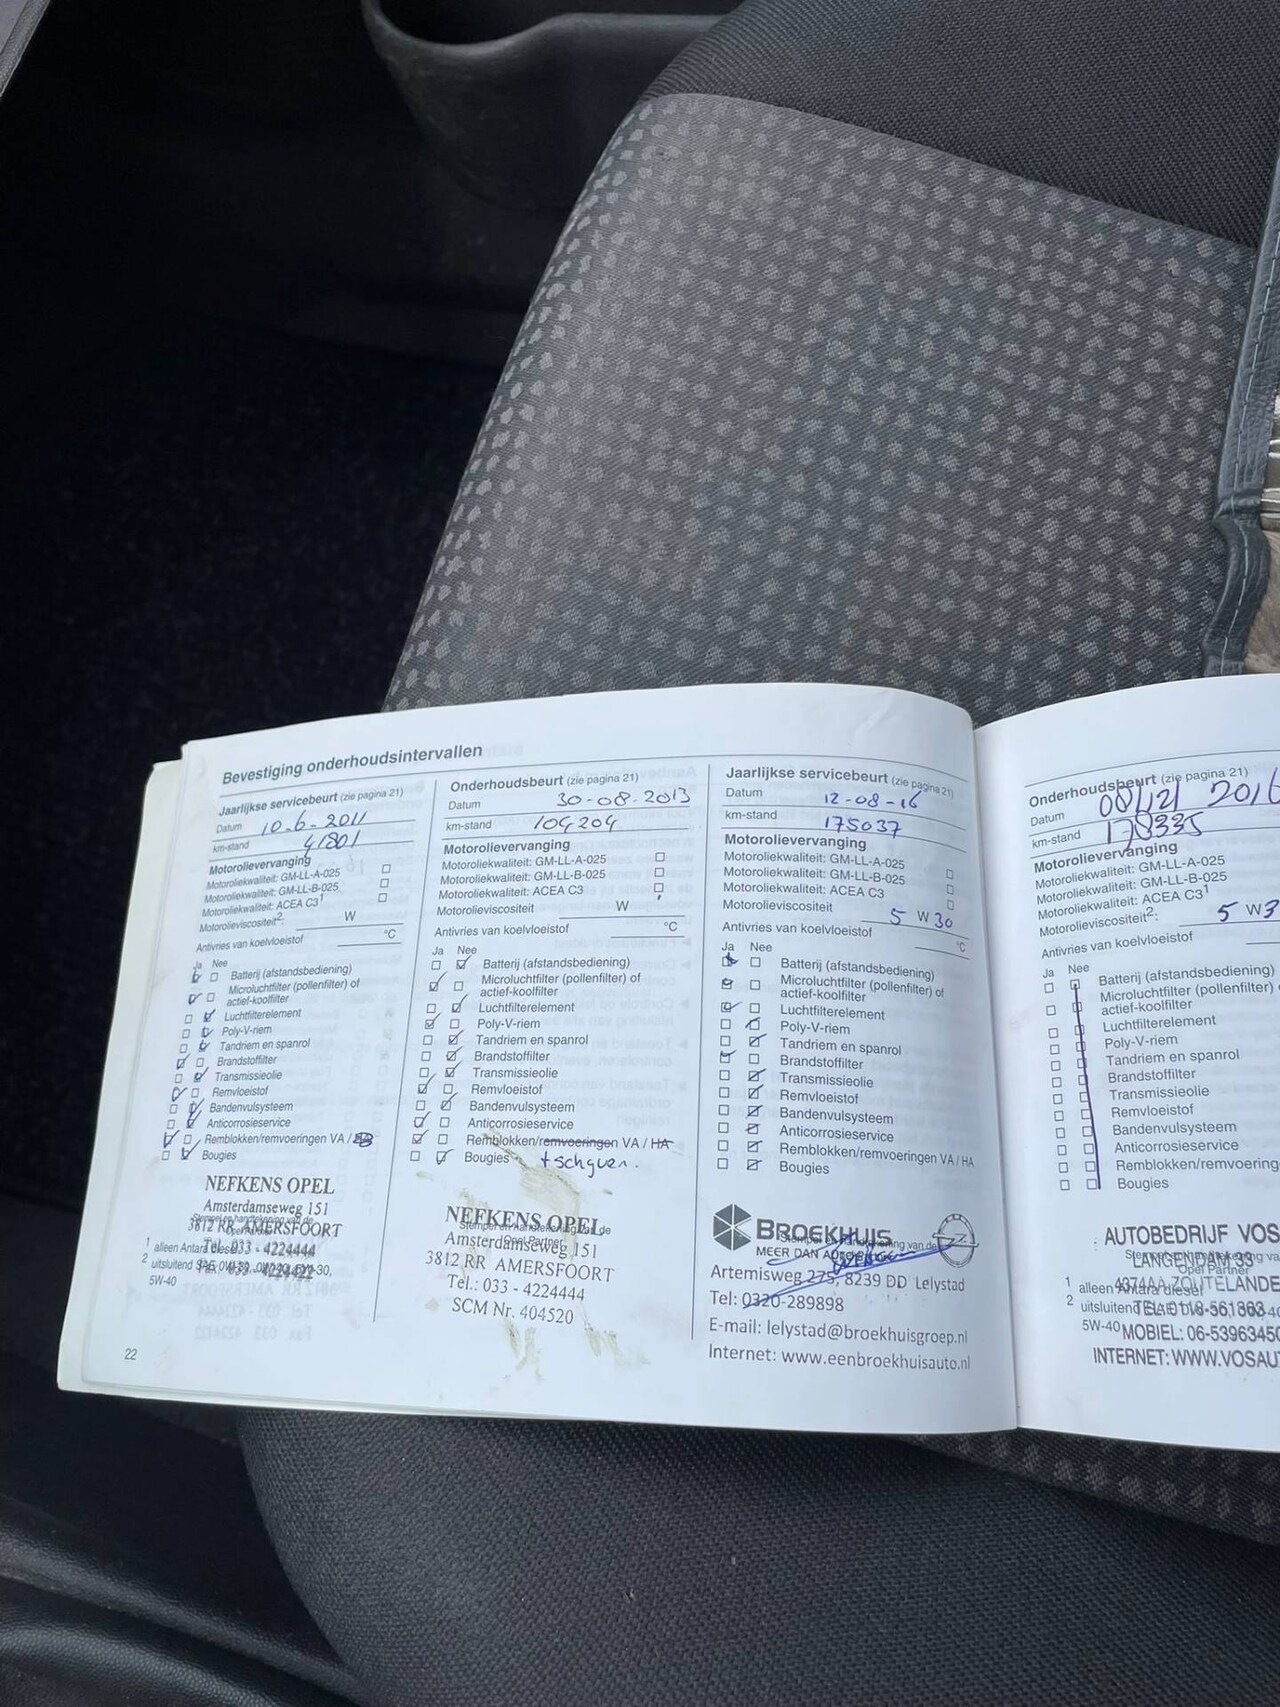 Bevestiging onderhoudsintervallen
Jaarlijkse servicebeurt (zie pagina 21)
Datum 10-6-2011
km-stand 41801
Motorolievervanging
Motoroliekwaliteit: GM-LL-A-025
Motoroliekwaliteit: GM-LL-B-025
Motoroliekwaliteit: ACEA C3¹
Motorolieviscositeit²: W
Antivries van koelvloeistof °C
Ja Nee
Batterij (afstandsbediening)
Microluchtfilter (pollenfilter) of
actief-koolfilter
Luchtfilterelement
Poly-V-riem
Tandriem en spanrol
Brandstoffilter
Transmissieolie
Remvloeistof
Bandenvulsysteem
Anticorrosieservice
Remblokken/remvoeringen VA /
Bougies
NEFKENS OPEL
Amsterdamseweg 151
3812 RR AMERSFOORT
Tel. 033 - 4224444
¹ alleen Antara diesel
² uitsluitend SAE
5W-40
22
Onderhoudsbeurt (zie pagina 21)
Datum 30-08-2013
km-stand 104204
Motorolievervanging
Motoroliekwaliteit: GM-LL-A-025
Motoroliekwaliteit: GM-LL-B-025
Motoroliekwaliteit: ACEA C3
Motorolieviscositeit W
Antivries van koelvloeistof °C
Ja Nee
Batterij (afstandsbediening)
Microluchtfilter (pollenfilter) of
actief-koolfilter
Luchtfilterelement
Poly-V-riem
Tandriem en spanrol
Brandstoffilter
Transmissieolie
Remvloeistof
Bandenvulsysteem
Anticorrosieservice
Remblokken/remvoeringen VA / HA
Bougies + schyven.
NEFKENS OPEL
Stempel en handtekening van de
Opel Partner
Amsterdamseweg 151
3812 RR AMERSFOORT
Tel.: 033 - 4224444
SCM Nr. 404520
Jaarlijkse servicebeurt (zie pagina 21)
Datum 12-08-16
km-stand 175037
Motorolievervanging
Motoroliekwaliteit: GM-LL-A-025
Motoroliekwaliteit: GM-LL-B-025
Motoroliekwaliteit: ACEA C3
Motorolieviscositeit 5 W 30
Antivries van koelvloeistof °C
Ja Nee
Batterij (afstandsbediening)
Microluchtfilter (pollenfilter) of
actief-koolfilter
Luchtfilterelement
Poly-V-riem
Tandriem en spanrol
Brandstoffilter
Transmissieolie
Remvloeistof
Bandenvulsysteem
Anticorrosieservice
Remblokken/remvoeringen VA / HA
Bougies
BROEKHUIS
MEER DAN AUTO
Artemisweg 275, 8239 DD Lelystad
Tel: 0320-289898
E-mail: lelystad@broekhuisgroep.nl
Internet: www.eenbroekhuisauto.nl
Onderhoudsbeurt (zie pagina 21)
Datum 2016
km-stand 178335
Motorolievervanging
Motoroliekwaliteit: GM-LL-A-025
Motoroliekwaliteit: GM-LL-B-025
Motoroliekwaliteit: ACEA C3¹
Motorolieviscositeit²: 5 W3
Antivries van koelvloeistof
Ja Nee
Batterij (afstandsbediening)
Microluchtfilter (pollenfilter)
actief-koolfilter
Luchtfilterelement
Poly-V-riem
Tandriem en spanrol
Brandstoffilter
Transmissieolie
Remvloeistof
Bandenvulsysteem
Anticorrosieservice
Remblokken/remvoering
Bougies
AUTOBEDRIJF VOS
LANGENDAM 39
4374AA ZOUTELANDE
¹ alleen Antara diesel
² uitsluitend
5W-40
MOBIEL: 06-5396345
INTERNET: WWW.VOSAU